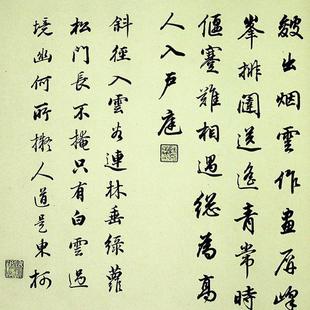 皴出烟雲作畫屏峰
峯排闥送遙青常時
偃蹇難相遇總為高
人入戶庭
斜徑入雲連林垂綠蘿
松門長不掩只有白雲過
境幽何所擬人道是東柯